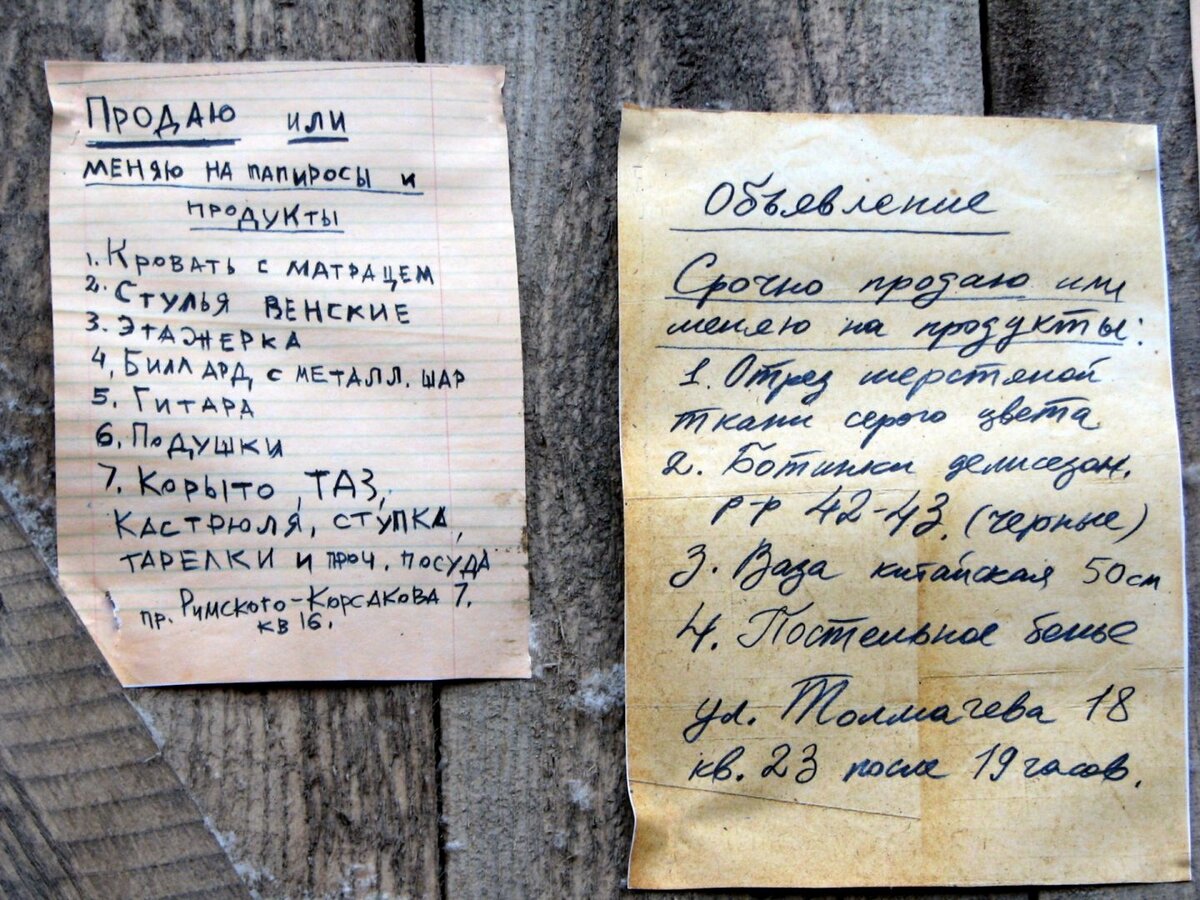 ПРОДАЮ ИЛИ
МЕНЯЮ НА ПАПИРОСЫ И
ПРОДУКТЫ
1. КРОВАТЬ С МАТРАЦЕМ
2. СТУЛЬЯ ВЕНСКИЕ
3. ЭТАЖЕРКА
4, БИЛЛАРД, С МЕТАЛЛ. ШАР
5. ГИТАРА
6, ПОДУШКИ
7. КОРЫТО, ТАЗ,
КАСТРЮЛЯ, СТУПКА,
ТАРЕЛКИ И ПРОЧ. ПОСУДА
пр. РИМСКОГО-КОРСАКОВА 7.
КВ 16.
Объявление
Срочно продаю или
меняю на продукты:
1. Отрез шерстяной
ткани серого цвета
2. Ботинки демисезон.
р-р 42-43. (черные)
3. Ваза китайская 50 см
4. Постельное белье
ул. Толмачева 18
кв. 23 после 19 часов.